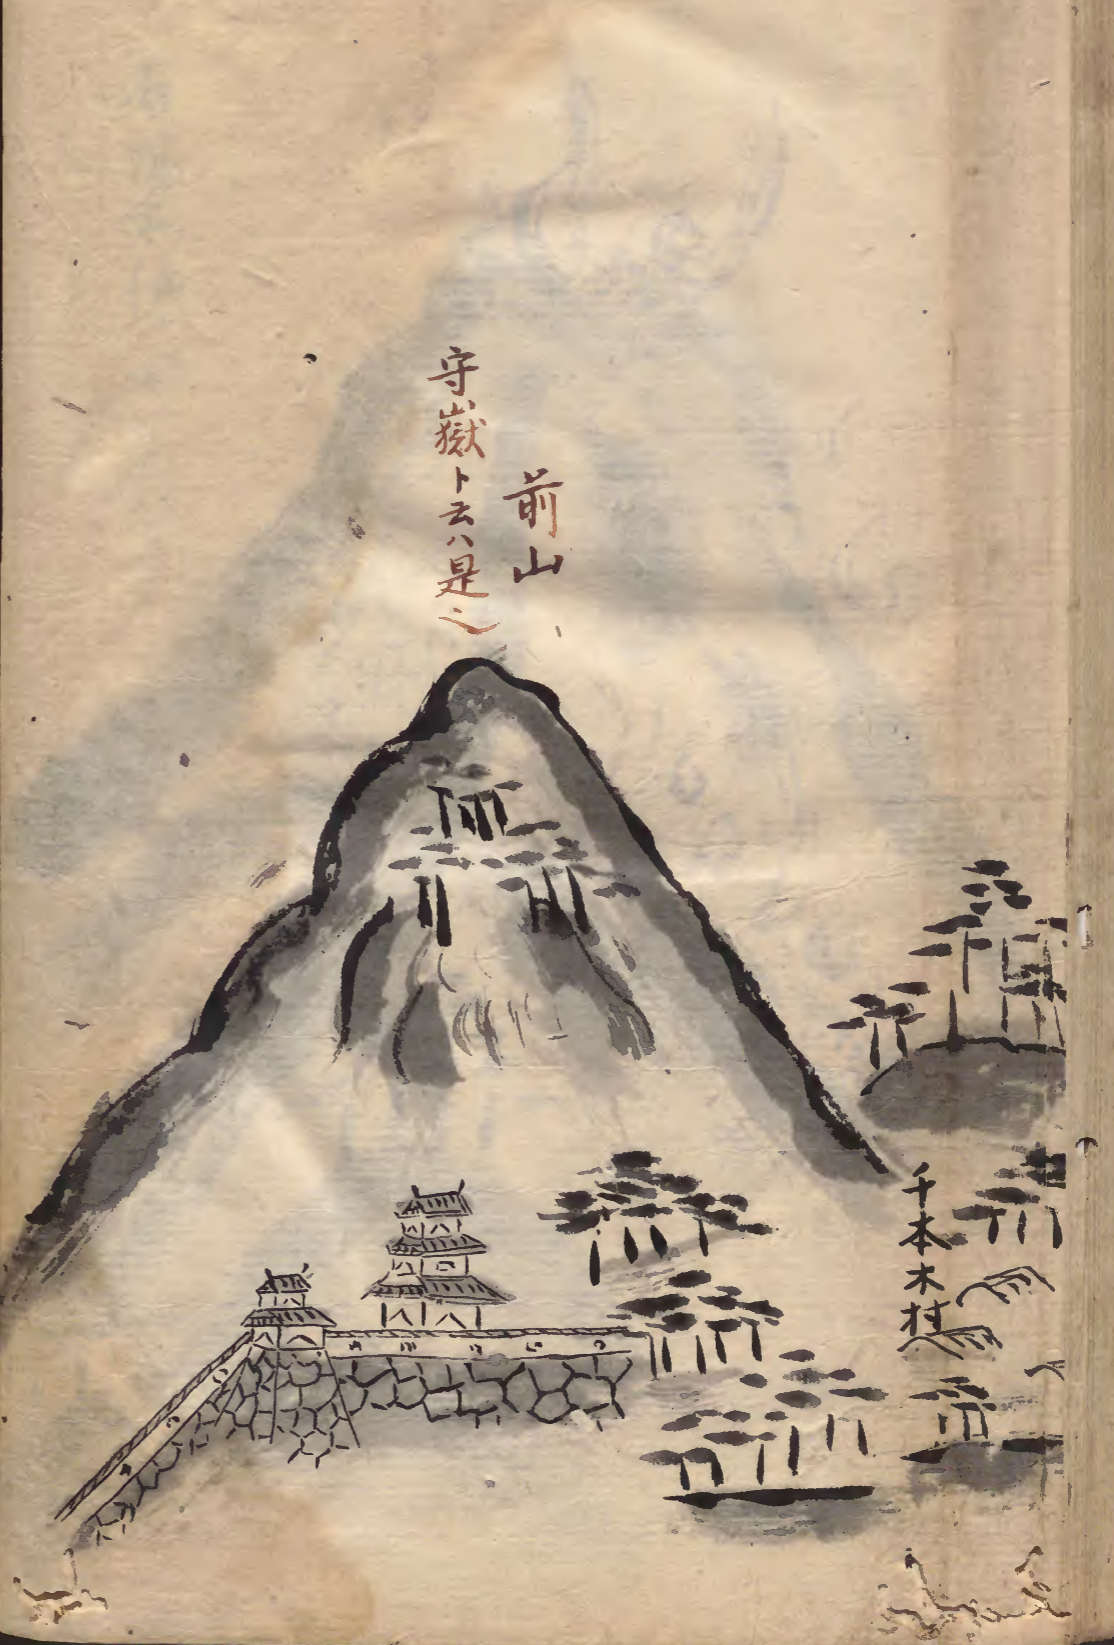 前山
守嶽ト云ハ是也
千本木村